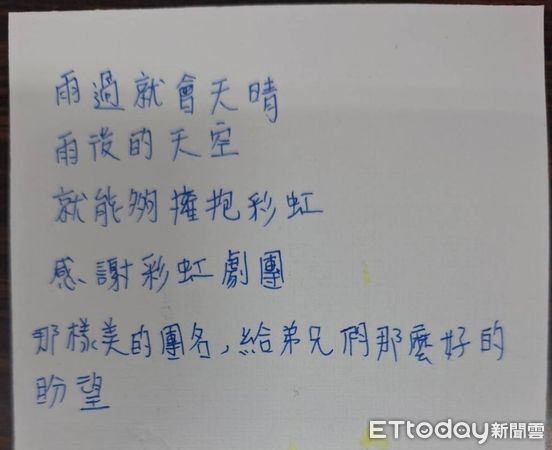 雨過就會天晴
雨後的天空
就能夠擁抱彩虹
感謝彩虹劇團
那樣美的團名,給弟兄們那麼好的
盼望
ETtoday新聞雲